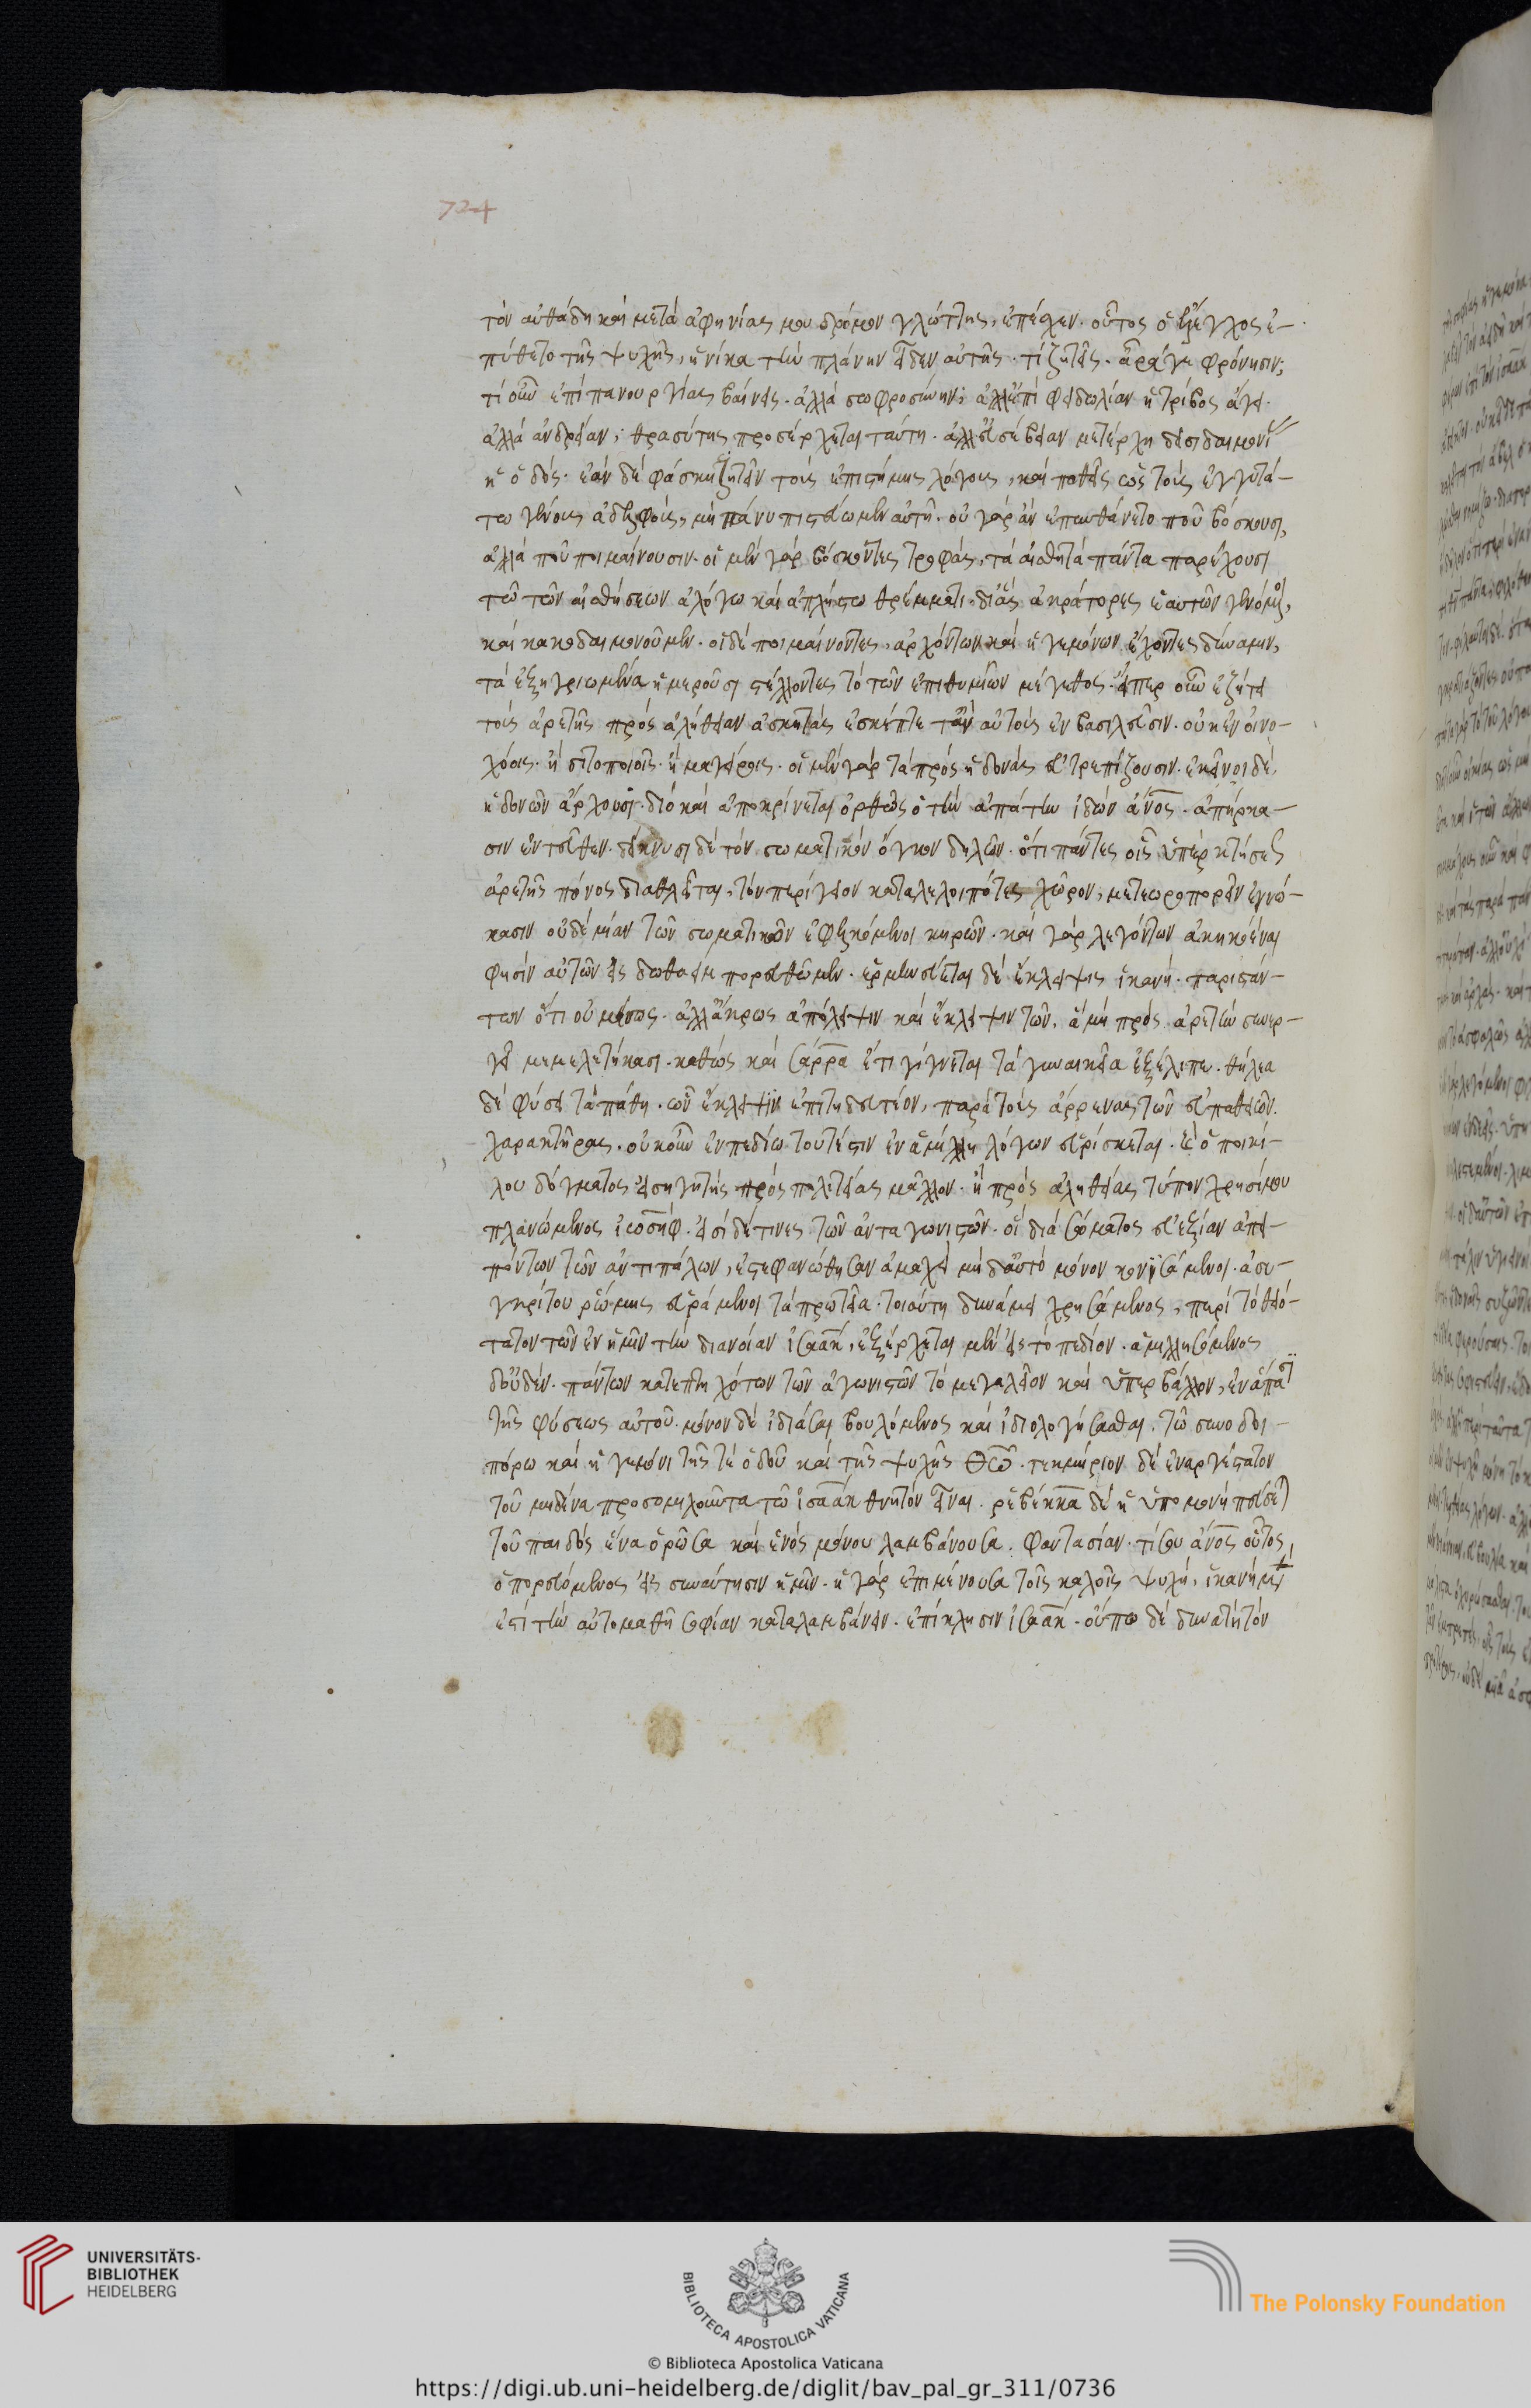 724
τὸν αὐθάδη καὶ μετὰ ἀφηνίασμου δρόμον γλώττης, ἐπέχεν. οὗτος ὁ ἔλεγχος ἐ-
πύθετο τῆς ψυχῆς, ἡνίκα τὴν πλάνην εἶδεν αὐτῆς. τί ζητεῖς. ἆρά γε φρόνησιν;
τί οὖν ἐπὶ πανουργίας βαίνεις. ἀλλὰ σωφροσύνην; ἀλλ' ἐπὶ φειδωλίαν ἡ τρίβος ἄγει.
ἀλλὰ ἀνδρείαν; θρασύτης προσέρχεται ταύτη. ἀλλ' εὐσέβειαν μετέρχη δεισιδαιμονί
ἡ ὁδός. ἐὰν δὲ φάσκη ζητεῖν τοὺς ἐπιστήμης λόγους, καὶ ποθεῖς ὡς τοὺς ἐγγυτά-
τω γένους ἀδελφούς, μὴ πάνυ πιστεύωμεν αὐτῆ. οὐ γὰρ ἂν ἐπυνθάνετο ποῦ βόσκουσι,
ἀλλὰ ποῦ ποιμαίνουσιν. οἱ μὲν γὰρ βόσκοντες τροφὰς, τὰ αἰσθητὰ πάντα παρέχουσι
τῶ τῶν αἰσθήσεων ἀλόγω καὶ ἀπλήστω θρέμματι. δι' ἃς ἀκράτορες ἑαυτῶν γενόμεν,
καὶ κακοδαιμονοῦμεν. οἱ δὲ ποιμαίνοντες, ἀρχόντων καὶ ἡγεμόνων ἔχοντες δύναμιν,
τὰ ἐξηγριωμένα ἡμεροῦσι στέλλοντες τὸ τῶν ἐπιθυμιῶν μέγεθος. εἴπερ οὖν ἐζήτει
τοὺς ἀρετῆς πρὸς ἀλήθειαν ἀσκητάς ἐσκέπτετο ἂν αὐτοὺς ἐν βασιλεῦσιν. οὐκ ἐν οἰνο-
χόοις. ἢ σιτοποιοῖς. ἢ μαγείροις. οἱ μὲν γὰρ τὰ πρὸς ἡδονὰς εὐτρεπίζουσιν. ἐκεῖνοι δὲ,
ἡδονῶν ἄρχουσι. διὸ καὶ ἀποκρίνεται ὀρθῶς ὁ τὴν ἀπάτην ἰδὼν ἄνος. ἀπήρκα-
σιν ἐντεῦθεν. δείκνυσι δὲ τὸν σωματικὸν ὄγκον δηλῶν. ὅτι πάντες οἷς ὑπὲρ κτήσεως
ἀρετῆς πόνος διαθλεῖται, τὸν περίγειον καταλελοιπότες χῶρον, μετεωροπορεῖν ἐγνώ-
κασιν οὐδεμίαν τῶν σωματικῶν ἐφελκόμενοι κηρῶν. καὶ γὰρ λεγόντων ἀκηκοέναι
φησὶν αὐτῶν εἰς δωθαεὶμ πορευθῶμεν. ἑρμηνεύεται δὲ ἔκλειψις ἱκανή. παριστάν-
των ὅτι οὐ μέσως. ἀλλ' ἄκρως ἀπόλειψιν καὶ ἔκλειψιν τῶν, ἃ μὴ πρὸς ἀρετὴν συνερ-
γεῖ μεμελετήκασι. καθὼς καὶ Σάρρα ἔτι γίγνεται τὰ γυναικεῖα ἐξέλιπεν. θήλεα
δὲ φύσει τὰ πάθη. ὧν ἔκλειψιν ἐπιτηδευτέον, παρὰ τοὺς ἄρρενας τῶν εὐπαθειῶν.
χαρακτῆρας. οὐκοῦν ἐν πεδίω τουτέστιν ἐν ἁμίλλη λόγων εὑρίσκεται. ὁ ποικί-
λου δόγματος εἰσηγητής πρὸς πολιτείας μᾶλλον. ἢ πρὸς ἀληθείας τύπον χρησίμου
πλανώμενος ἰωσήφ. εἰσὶ δέ τινες τῶν ἀνταγωνιστῶν. οἳ διὰ σώματος εὐεξίαν ἀπει-
πόντων τῶν ἀντιπάλων, ἐστεφανώθησαν ἀμαχεὶ μὴ δ' αὐτὸ μόνον κονισάμενοι. ἀσυ-
γκρίτου ῥώμης εὑράμενοι τὰ πρωτεῖα. τοιαύτη δυνάμει χρησάμενος, περὶ τὸ θειό-
τατον τῶν ἐν ἡμῖν τὴν διανοίαν ἰσαάκ, ἐξέρχεται μὲν εἰς τὸ πεδίον. ἁμιλλησόμενος
δ' οὐδέν. πάντων κατεπτηχότων τῶν ἀγωνιστῶν τὸ μεγαλεῖον καὶ ὑπερβάλλον, ἐν ἅπασι
τῆς φύσεως αὐτοῦ. μόνον δὲ ἰδιάσαι βουλόμενος καὶ ἰδιολογήσασθαι. τῶ συνοδοι-
πόρω καὶ ἡγεμόνι τῆς τε ὁδοῦ καὶ τῆς ψυχῆς θῶ. τεκμήριον δὲ ἐναργέστατον
τοῦ μηδένα προσομιλοῦντα τῶ ἰσαὰκ θνητὸν εἶναι. ῥεβέκκα δὲ ἡ ὑπομονὴ πεύσεται
τοῦ παιδὸς ἕνα ὁρῶσα καὶ ἑνὸς μόνου λαμβάνουσα. φαντασίαν. τίς ἄνος οὗτος
ὁ πορευόμενος εἰς συνάντησιν ἡμῖν. ἡ γὰρ ἐπιμένουσα τοῖς καλοῖς ψυχή, ἱκανὴ μέν
ἐστὶ τὴν αὐτομαθῆ σοφίαν καταλαμβάνειν. ἐπίκλησιν ἰσαάκ. οὔπω δὲ δυνατὴ τὸν
UNIVERSITÄTS-
BIBLIOTHEK
HEIDELBERG
BIBLIOTECA APOSTOLICA VATICANA
The Polonsky Foundation
© Biblioteca Apostolica Vaticana
https://digi.ub.uni-heidelberg.de/diglit/bav_pal_gr_311/0736